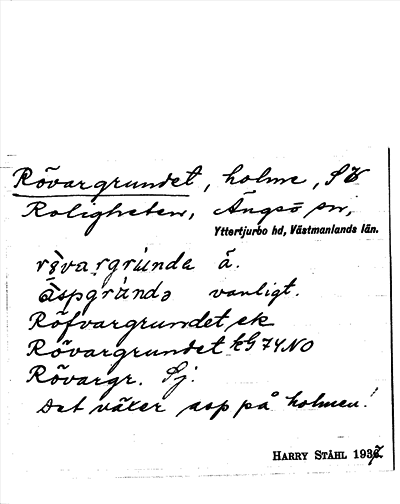 Rövargrundet, holme, SV
Roligheten, Ängsö sn,
Yttertjurbo hd, Västmanlands län.
rövargrúnda ä.
àspgrúndə vanligt.
Röfvargrundet ek
Rövargrundet kG 74 NO
Rövargr. Sj.
Det växer asp på holmen!
HARRY STÅHL 1937.